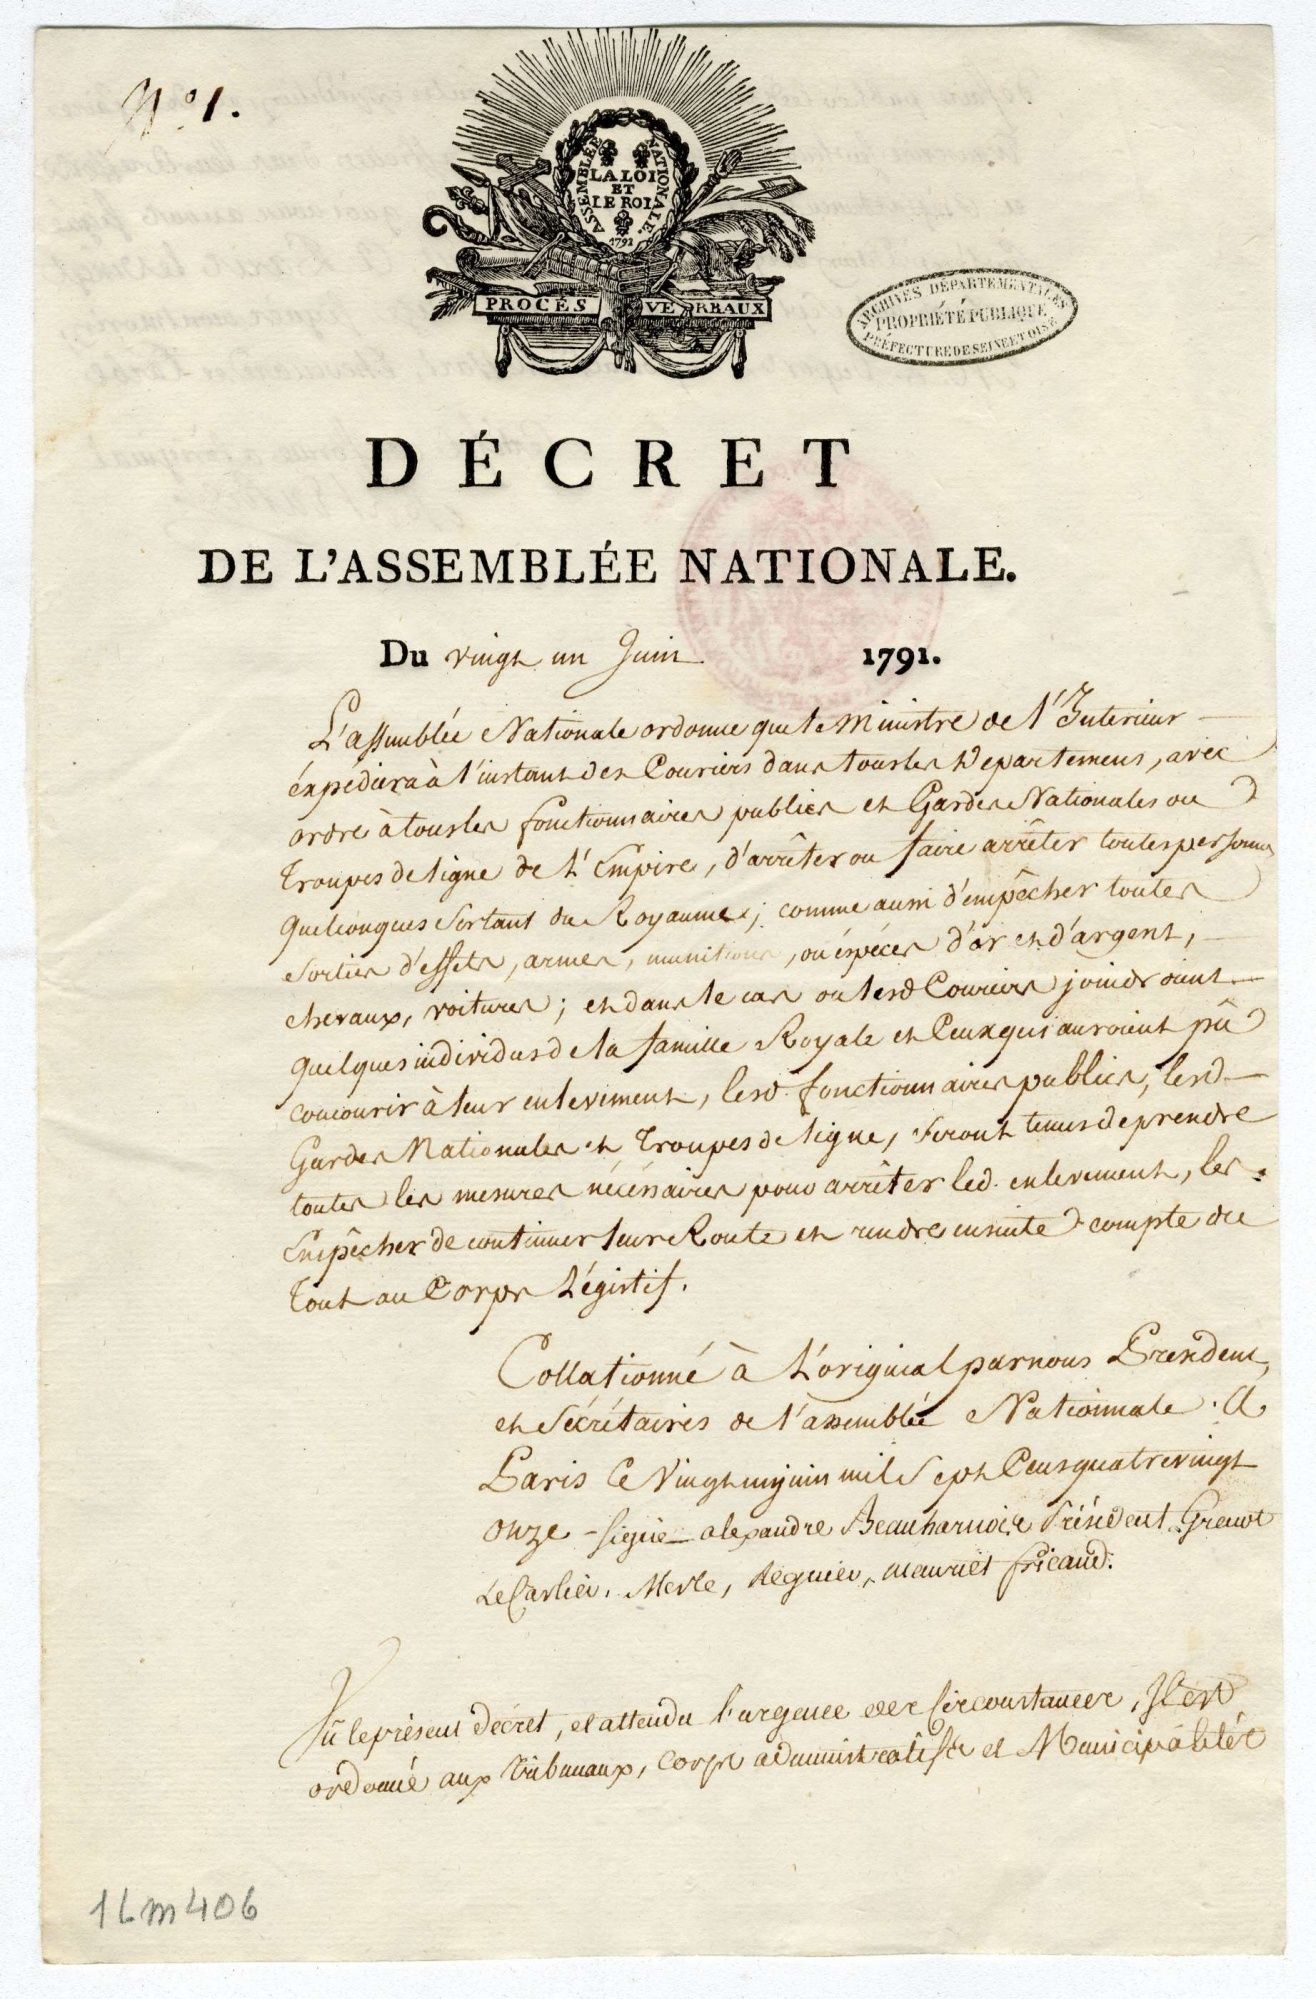 N.° 1.
ASSEMBLÉE NATIONALE.
LA LOI
ET
LE ROI
1791
PROCÈS VERBAUX
ARCHIVES DÉPARTEMENTALES
PROPRIÉTÉ PUBLIQUE
PRÉFECTURE DE SEINE ET OISE
DÉCRET
DE L'ASSEMBLÉE NATIONALE.
Du vingt un Juin 1791.
L'assemblée Nationale ordonne que le Ministre de l'Interieur
éxpediera à l'instant des Couriers dans tous les Departemens, avec
ordre à tous les fonctionnaires publics et Gardes Nationales ou
Troupes de ligne de L'Empire, d'arrêter ou faire arrêter toutes personnes
quelconques Sortant du Royaume; comme aussi d'empêcher toutes
sorties d'effets, armes, munitions, ou éspéces d'or et d'argent,
chevaux, voitures; et dans le cas ou lesd Couriers joindroient
quelques individus de la famille Royale et Ceux qui auroient pû
concourir à leur enlevement, lesd. fonctionnaires publics, lesd
Gardes Nationales et Troupes de ligne, seront tenus de prendre
toutes les mesures nécéssaires pour arrêter led. enlevement, les
Empêcher de continuer leur Route et rendre ensuite compte du
Tout au Corps Législatif.
Collationné à L'original par nous Président,
et Sécrétaires de l'assemblée Nationnale. A
Paris Ce Vingt un juin mil Sept Cens quatre vingt
onze - signé - alexandre Beauharnois Président Grenot
Le Carlier. Merle, Régnier, mauriet fricaud.
Vû le présent décret, et attendu l'urgence des Circonstances, Il est
ordonné aux Tribunaux, Corps administratifs et Municipalités
1Lm406